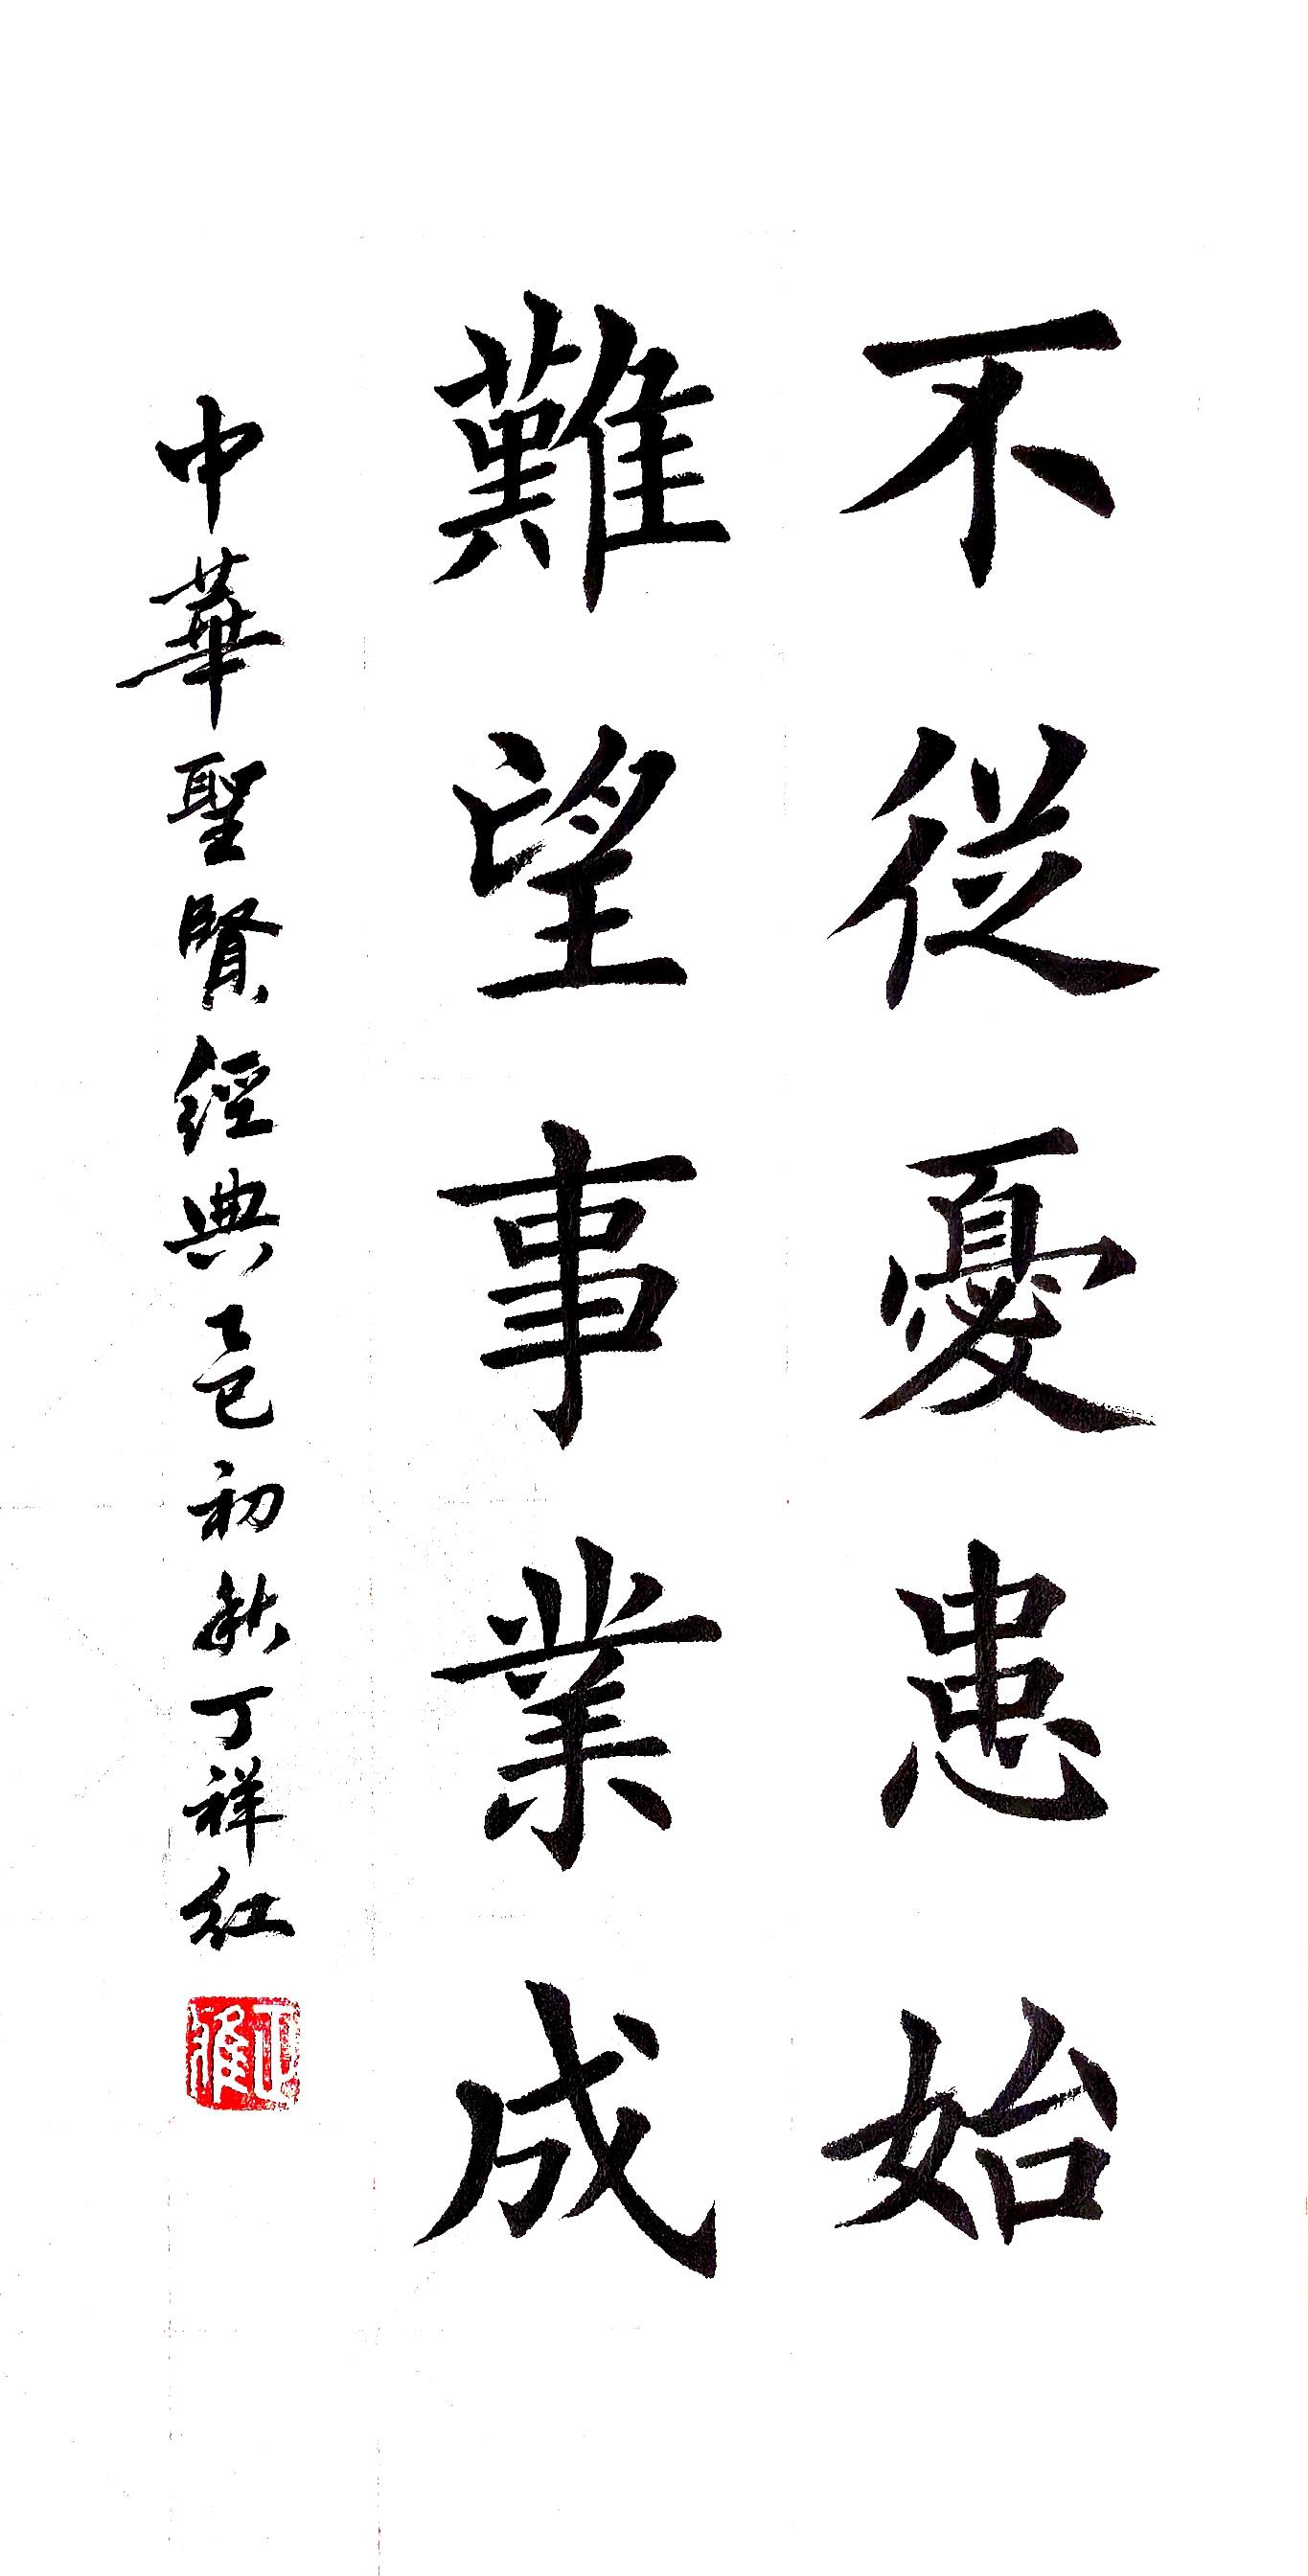 不従憂患始
難望事業成
中華聖賢經典乙巳初秋丁祥红